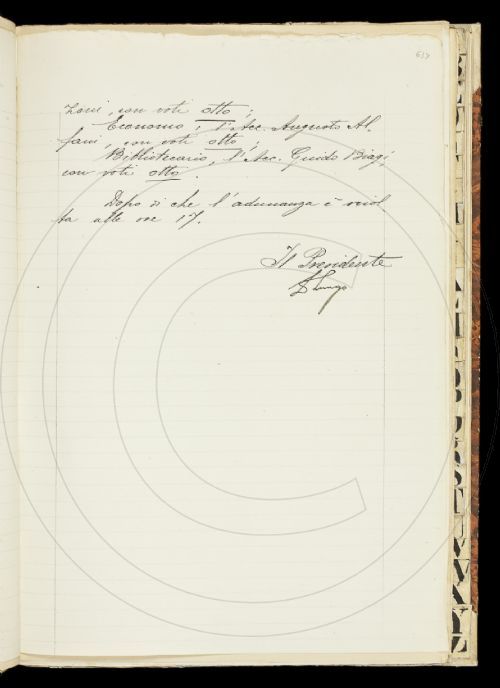 zoni, con voti otto;
Economo, l'Acc. Augusto Al-
fani, con voti otto;
Bibliotecario, l'Acc. Guido Biagi,
con voti otto.
Dopo di che l'adunanza è sciol-
ta alle ore 17.
Il Presidente